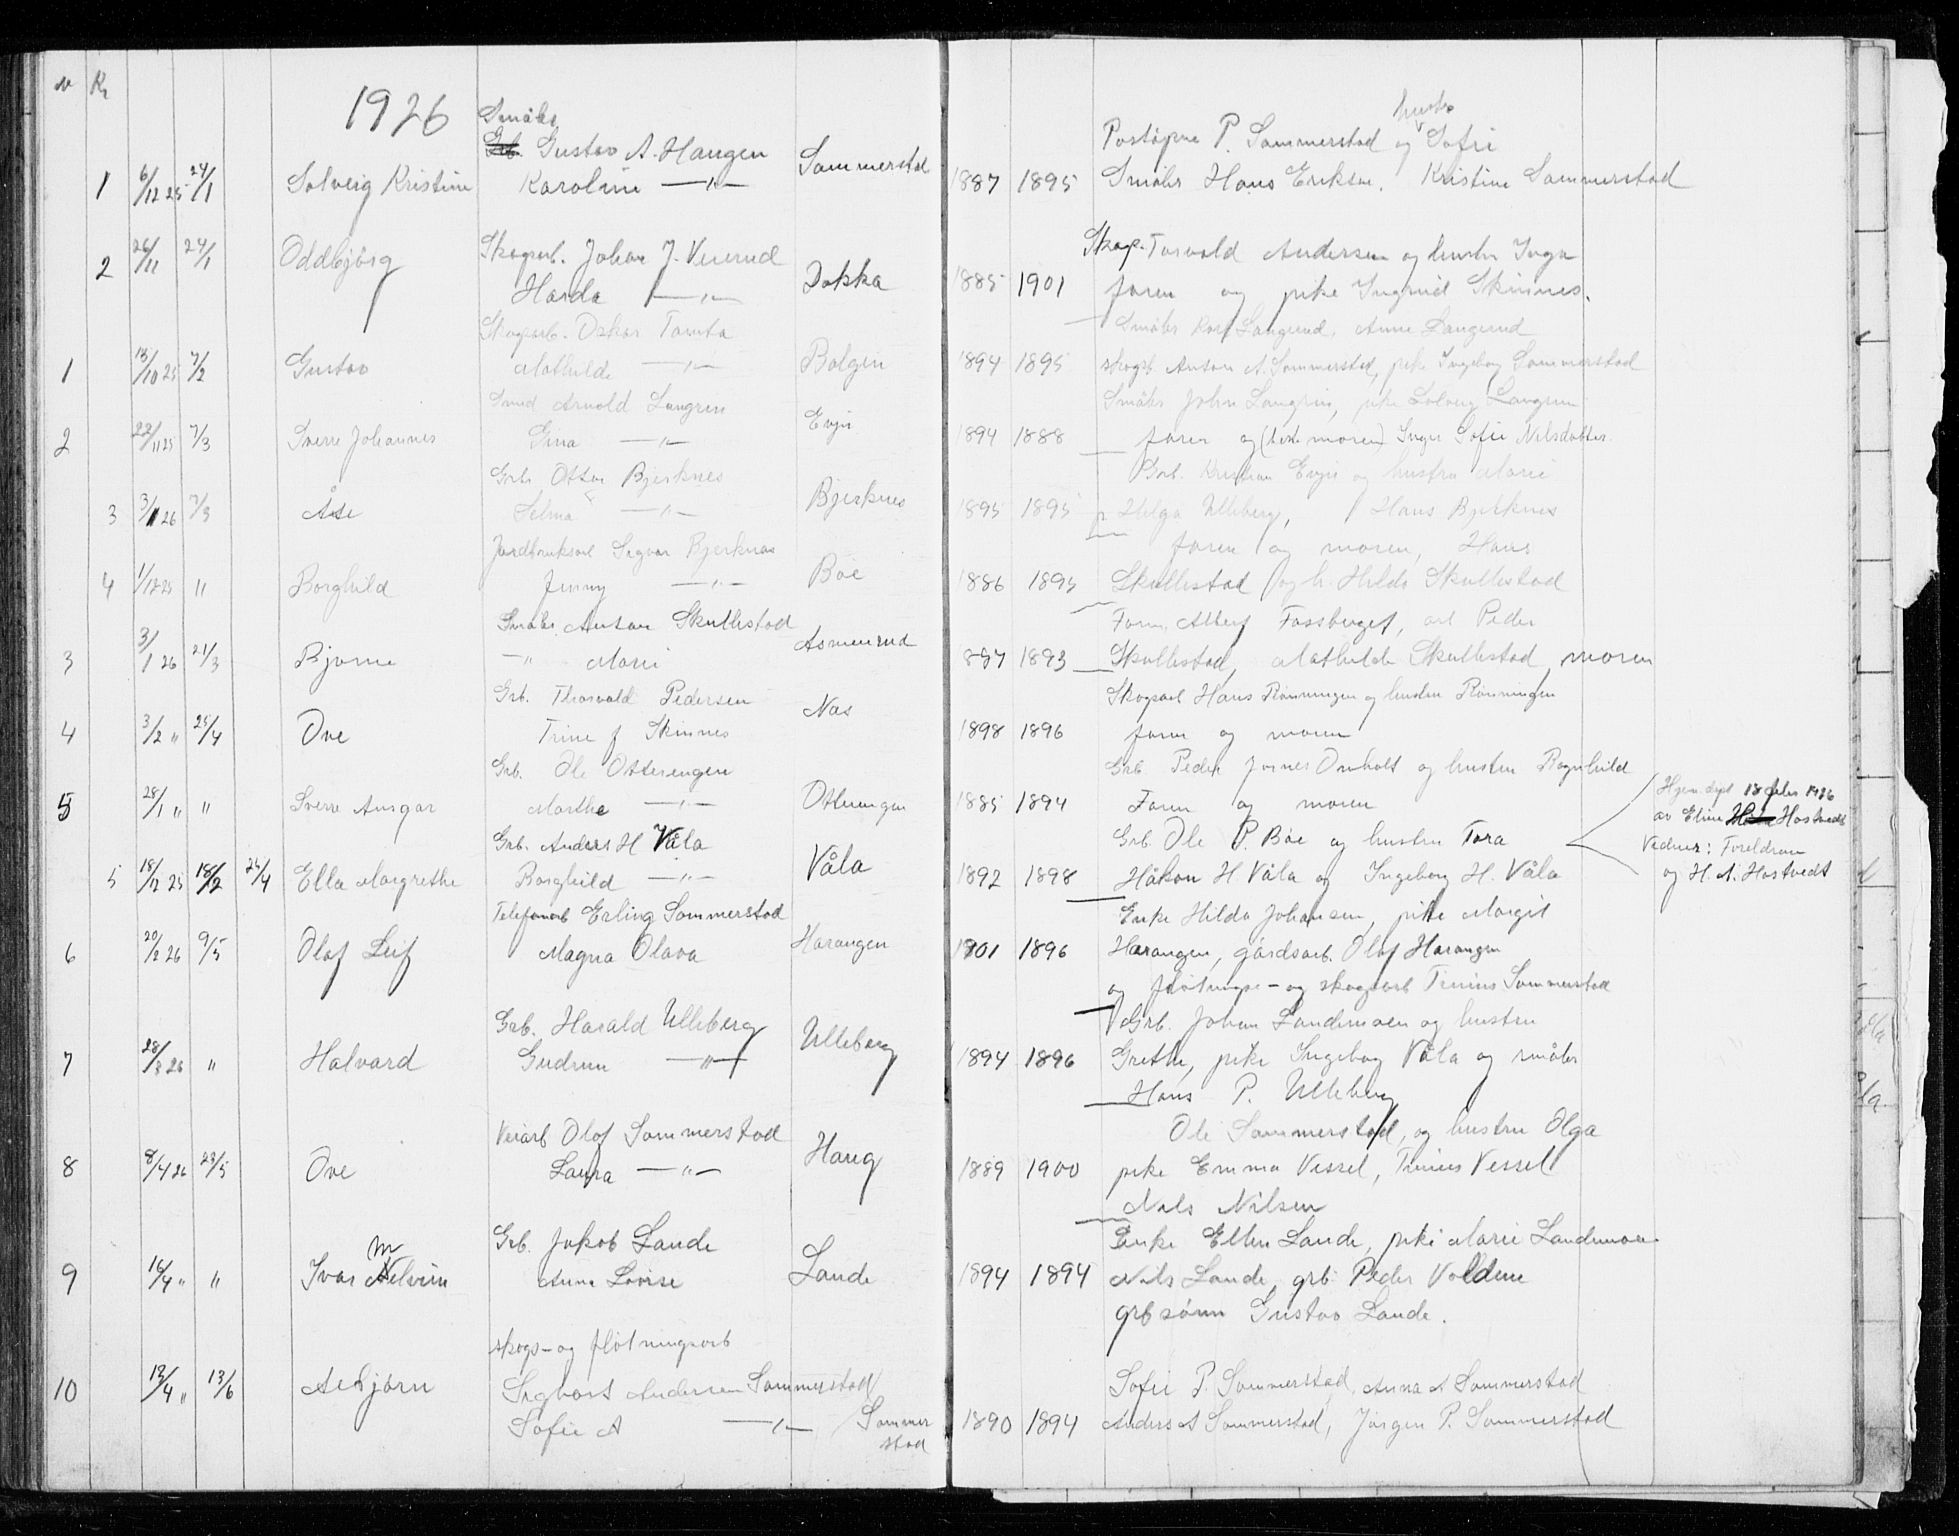 1926
1 6/12 25 24/1 Solveig Kristine Småbr. Gustav A. Haugen
Karoline —"— Sommerstad 1887 1895 Poståpne P. Sommerstad og hustr Sofie
Småbr Hans Eriksen, Kristine Sommerstad
2 26/11 24/1 Oddbjørg Skogsarb. Johan J. Veierud
Harda —"— Dokka 1885 1901 Skogs. Torvald Andersen og hustr Inga
faren og pike Ingrid Skinnes.
1 13/10 25 7/2 Gustav Skogsarb. Oskar Tomta
Mathilde —"— Bolgen 1894 1895 Småbr Karl Langerud, Anne Langerud
skogsb. Anton A. Sommerstad, pike Ingeborg Sommerstad
2 22/11 25 7/3 Sverre Johannes Smed Arnold Langren
Gina —"— Evje 1894 1888 Småbr John Langren, pike Solveig Langren
faren og (best. moren) Inger Sofie Nilsdatter.
3 3/1 26 7/3 Åse Grb. Otto Bjerknes
Selma —"— Bjerknes 1895 1895 Grb. Kristian Evje og hustru Marie
p Helga Ulleberg, Hans Bjerknes
4 1/12 25 " Borghild Jordbruksarb Sigvar Bjerknes
Jenny —"— Bøe 1886 1895 faren og moren, Hans
Skullestad og h. Hilda Skullestad
3 3/1 26 21/3 Bjarne Småbr. Anton Skullestad
—" Marie Asmerud 1887 1893 Form. Albert Fossberget, arb Peder
Skullestad, Mathilde Skullestad moren
4 3/2 " 25/4 Ove Grb. Thorvald Pedersen
Trine f Skinnes Næs 1898 1896 Skogsarb Hans Rønningen og hustru Rønningen
faren og moren
5 28/1 " " Sverre Ansgar Grb. Ole Otterengen
Marthe —"— Otterengen 1885 1894 Grb Peder Jørnes Onholt og hustru Ragnhild
Faren og moren
5 18/12 25 18/2 25/4 Ella Margrethe Grb. Anders H Våla
Borghild —"— Våla 1892 1898 Grb Ole P. Bøe og hustru Tora
Håkon H Våla og Ingeborg H. Våla
Hjem.døpt 18 febr 1926
av Eline Hostvedt
Vedner: Foreldrene
og H. A. Hostvedt
6 20/2 26 9/5 Olaf Leif Telefonarb Erling Sommerstad
Magna Olava Harangen 1901 1896 Enke Hilda Johansen, pike Margit
Harangen, gårdsarb. Olaf Harangen
og fløtnings- og skogsarb Trinius Sommerstad
7 28/3 26 " Halvard Grb. Harald Ulleberg
Gudrun —"— Ulleberg 1894 1896 Grb. Johan Landemoen og hustru
Grethe, pike Ingeborg Våla og småbr
Hans P. Ulleberg
8 8/4 26 23/5 Ove Veiarb Olaf Sommerstad
Laura —"— Haug 1889 1900 Ole Sommerstad, og hustru Olga
pike Emma Vessel, Trinius Vessel
Nils Nilsen
9 16/4 " " Ivar Melvin Grb. Jakob Lande
Anna Lovise Lande 1894 1894 Enke Ellen Lande, pike Marie Landemoen
Nils Lande, grb Peder Voldene
grb sønn Gustav Lande.
10 13/4 " 13/6 Asbjørn skogs- og fløtningsarb
Sigvart Andersen Sommerstad
Sofie A —"— Sommerstad 1890 1894 Sofie P. Sommerstad, Anna A Sommerstad
Anders A Sommerstad, Jørgen P. Sommerstad